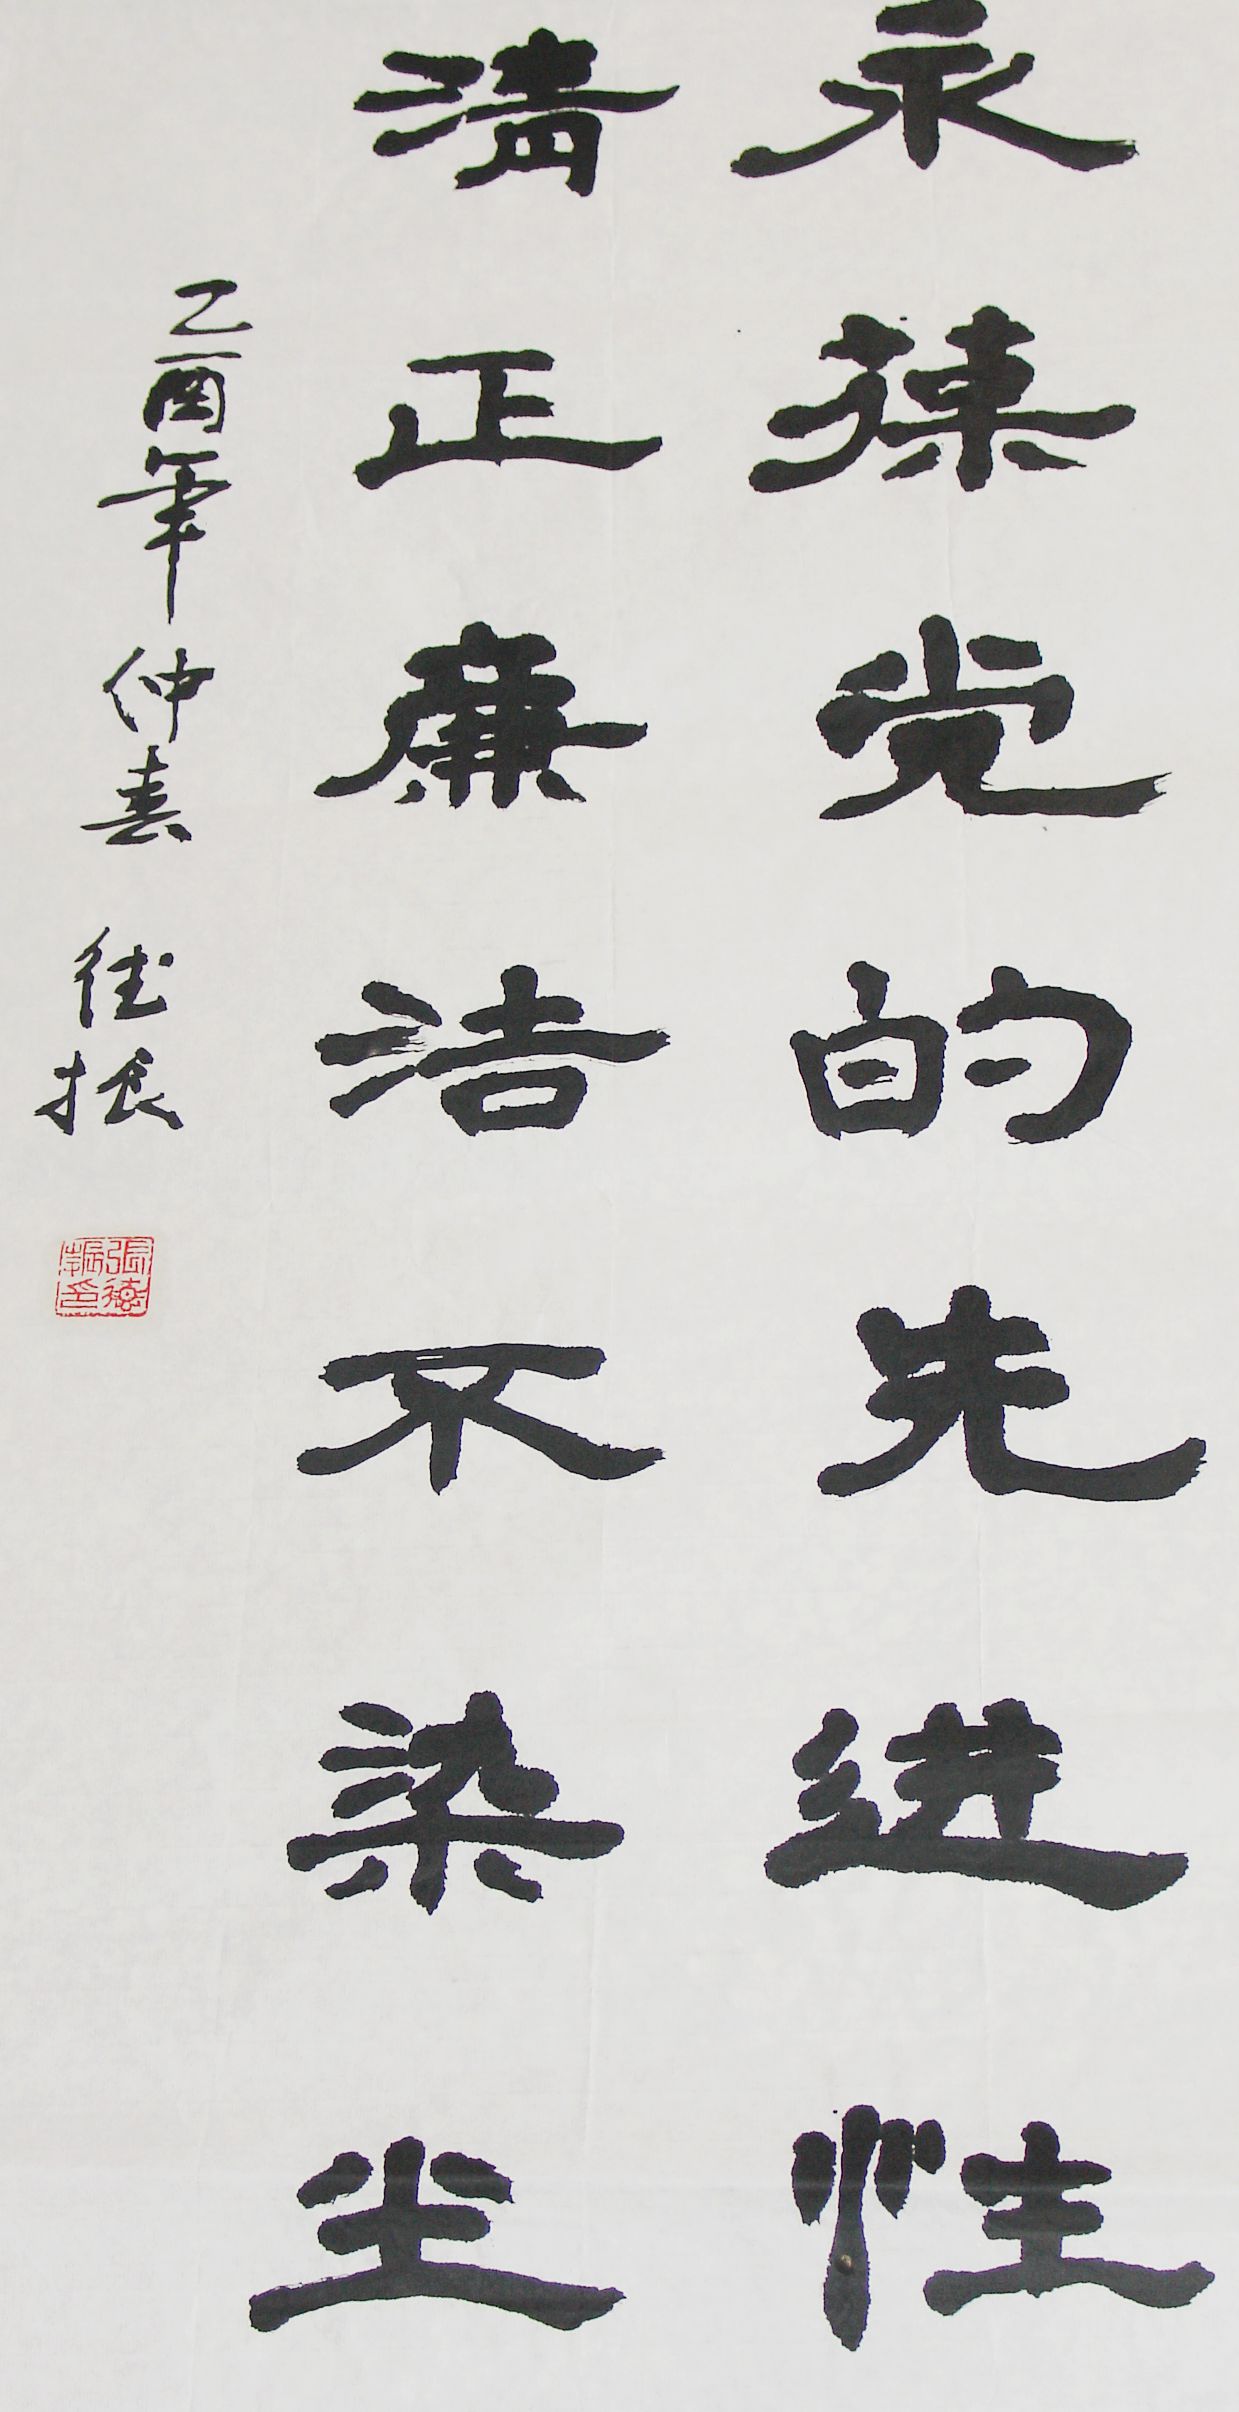 永葆党的先进性
清正廉洁不染尘
乙酉年仲春 德振
張德振印